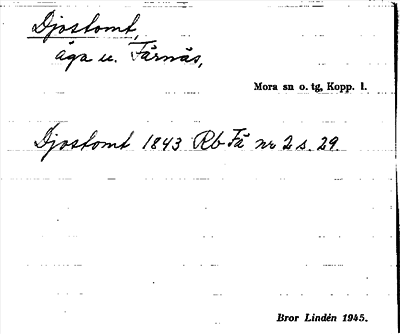 Djostomt,
äga u. Färnäs,
Mora sn o. tg, Kopp. l.
Djostomt 1843 Rb Få nr 2 s. 29.
Bror Lindén 1945.